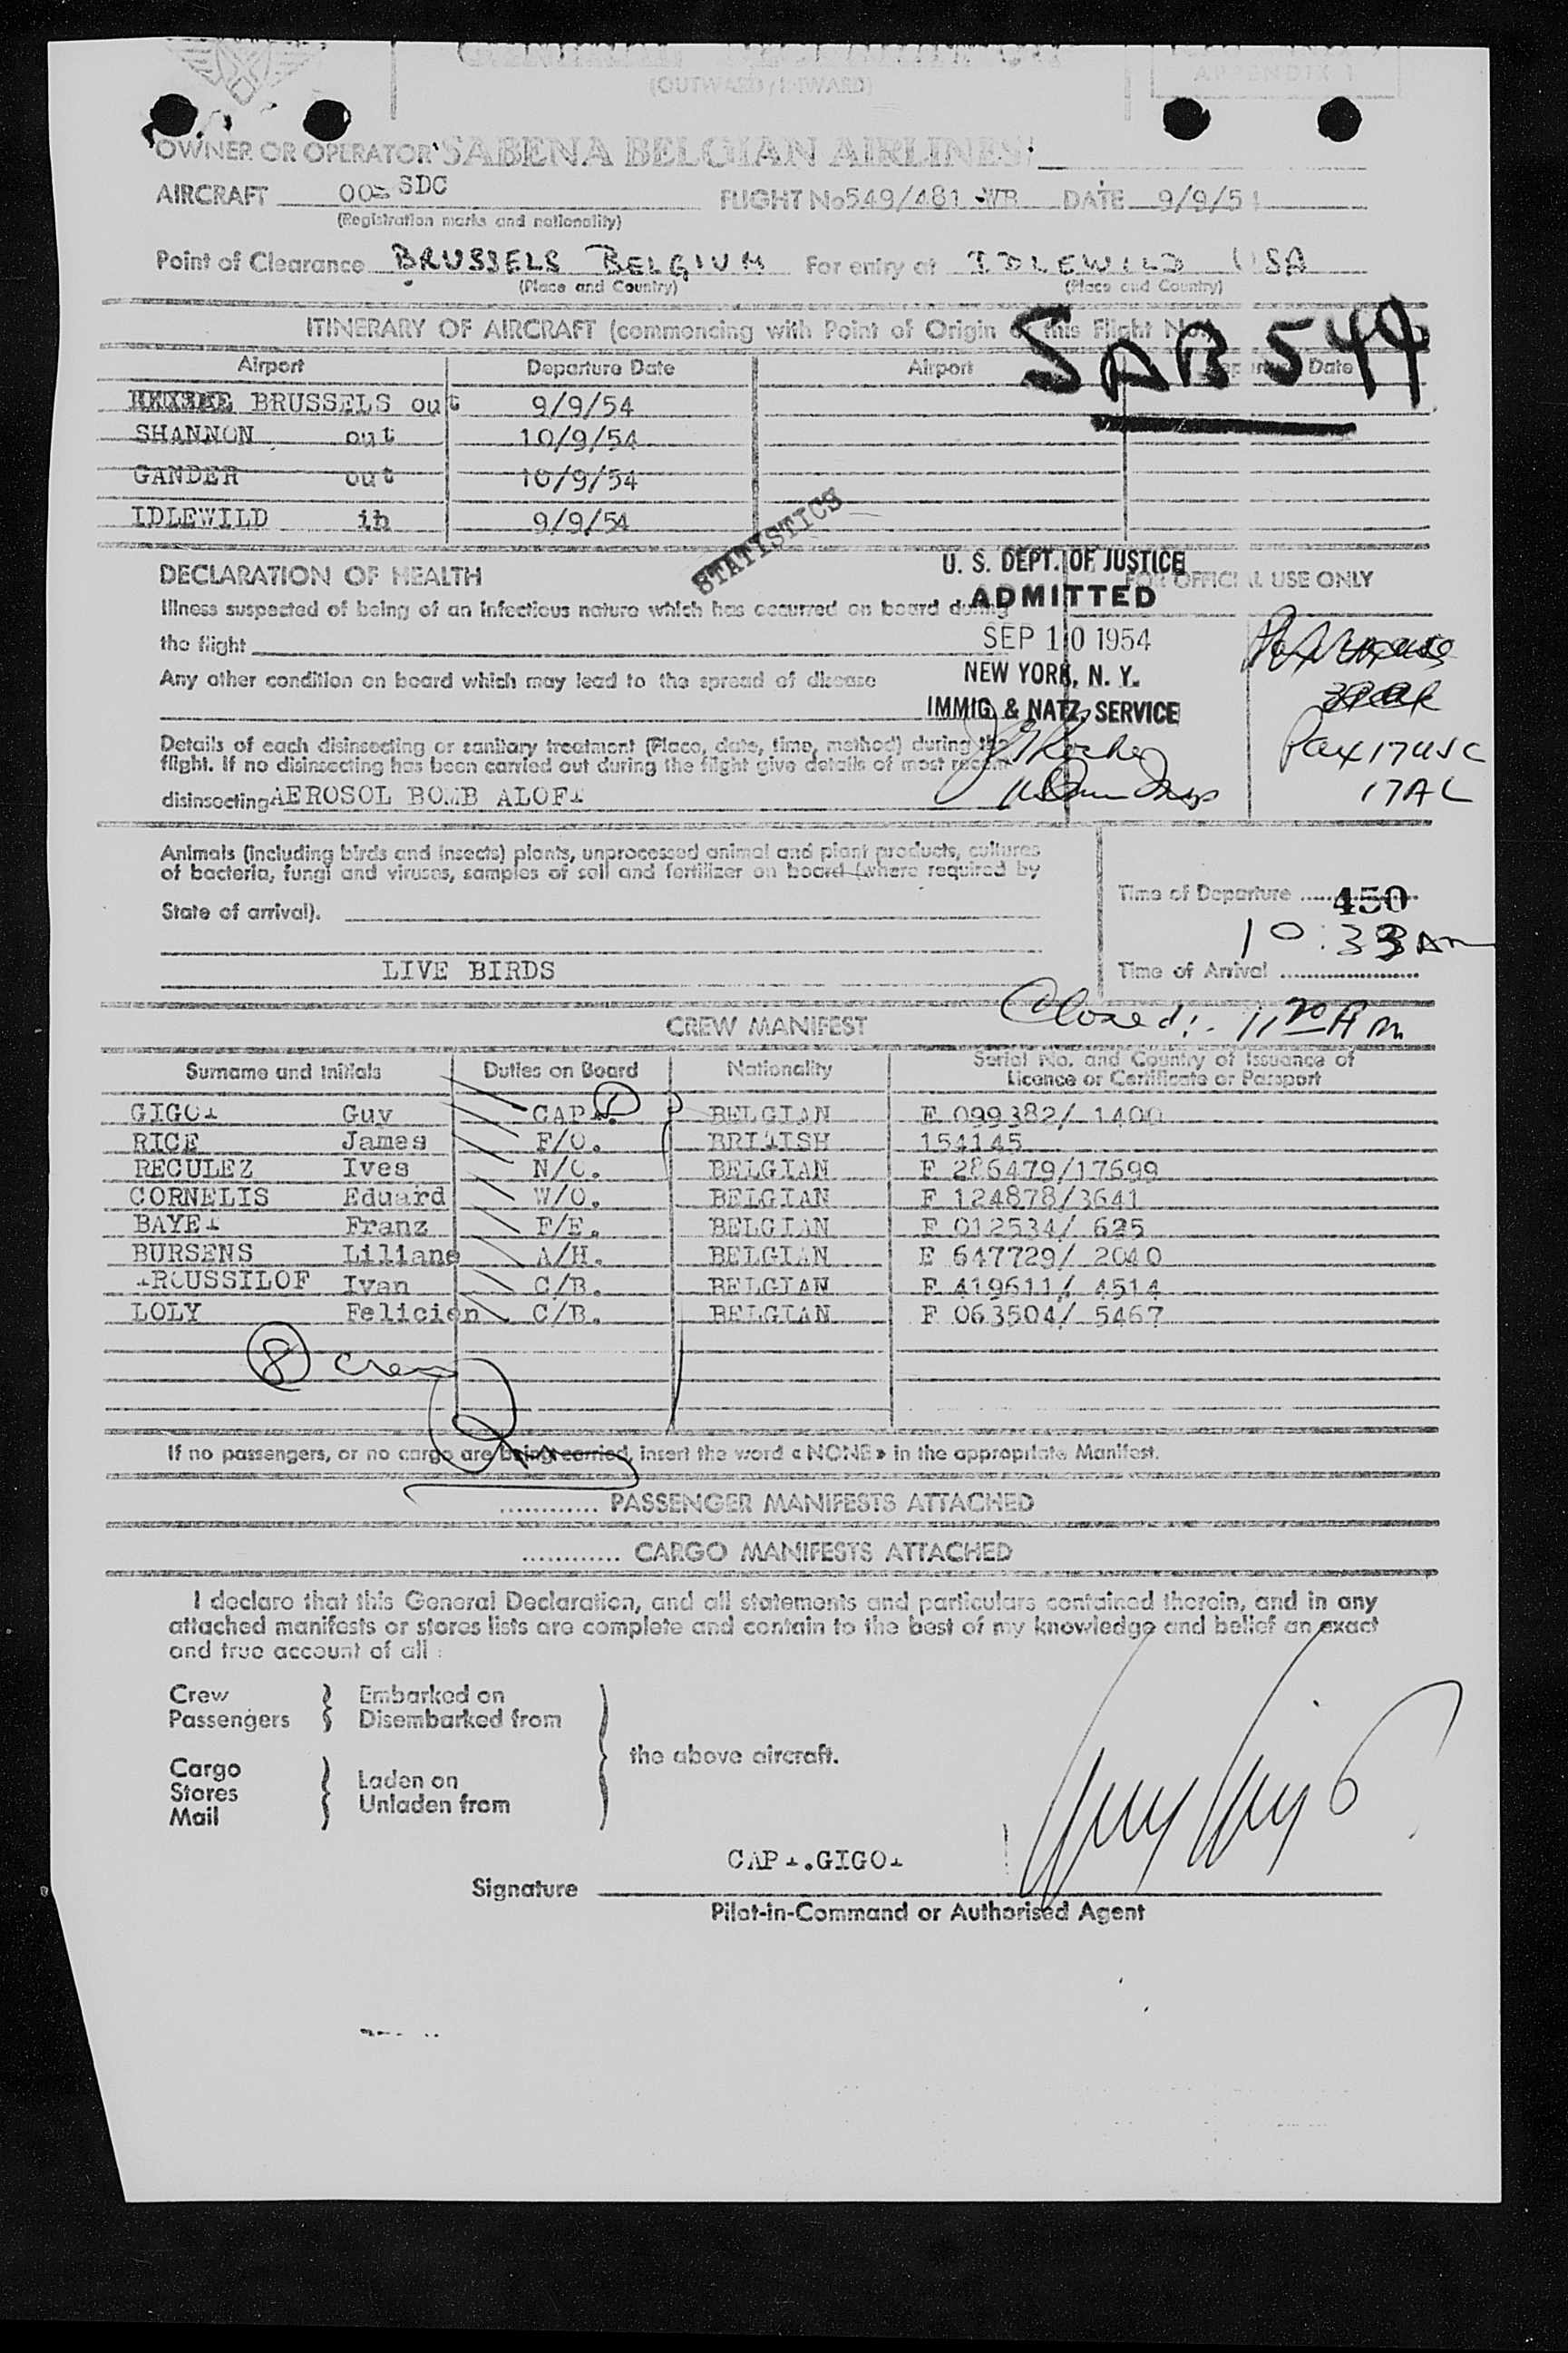 (OUTWARD / INWARD)
APPENDIX 1
OWNER OR OPERATOR SABENA BELGIAN AIRLINES
AIRCRAFT OO= SDC FLIGHT No 549/481 WB DATE 9/9/54
(Registration marks and nationality)
Point of Clearance BRUSSELS BELGIUM For entry at IDLEWILD USA
(Place and Country) (Place and Country)
ITINERARY OF AIRCRAFT (commencing with Point of Origin of this Flight No.)
SAB 549
Airport Departure Date Airport Departure Date
BRUSSELS out 9/9/54
SHANNON out 10/9/54
GANDER out 10/9/54
IDLEWILD in 9/9/54
STATISTICS
DECLARATION OF HEALTH
U. S. DEPT. OF JUSTICE
FOR OFFICIAL USE ONLY
ADMITTED
Illness suspected of being of an infectious nature which has occurred on board during
the flight
SEP 10 1954
Any other condition on board which may lead to the spread of disease
NEW YORK, N. Y.
IMMIG. & NATZ. SERVICE
Details of each disinsecting or sanitary treatment (Place, date, time, method) during the
flight. If no disinsecting has been carried out during the flight give details of most recent
Pax 17 USC
17 AL
disinsecting AEROSOL BOMB ALOFT
Animals (including birds and insects) plants, unprocessed animal and plant products, cultures
of bacteria, fungi and viruses, samples of soil and fertilizer on board (where required by
State of arrival).
Time of Departure 450
10:33 AM
LIVE BIRDS
Time of Arrival
Closed: 11 20 AM
CREW MANIFEST
Surname and Initials Duties on Board Nationality Serial No. and Country of Issuance of
Licence or Certificate or Passport
GIGOT Guy CAPT. 1 BELGIAN E 099382/ 1400
RICE James F/O. BRITISH 154145
RECULEZ Ives N/O. BELGIAN F 286479/17699
CORNELIS Eduard W/O. BELGIAN F 124878/3641
BAYET Franz F/E. BELGIAN F 012534/ 625
BURSENS Liliane A/H. BELGIAN E 647729/ 2040
TROUSSILOF Ivan C/B. BELGIAN F 419611/ 4514
LOLY Felicien C/B. BELGIAN F 063504/ 5467
8 crew
If no passengers, or no cargo are being carried, insert the word « NONE » in the appropriate Manifest.
............ PASSENGER MANIFESTS ATTACHED
............ CARGO MANIFESTS ATTACHED
I declare that this General Declaration, and all statements and particulars contained therein, and in any
attached manifests or stores lists are complete and contain to the best of my knowledge and belief an exact
and true account of all :
Crew Embarked on
Passengers Disembarked from
the above aircraft.
Cargo
Stores Laden on
Mail Unladen from
CAPT.GIGOT
Signature
Pilot-in-Command or Authorised Agent